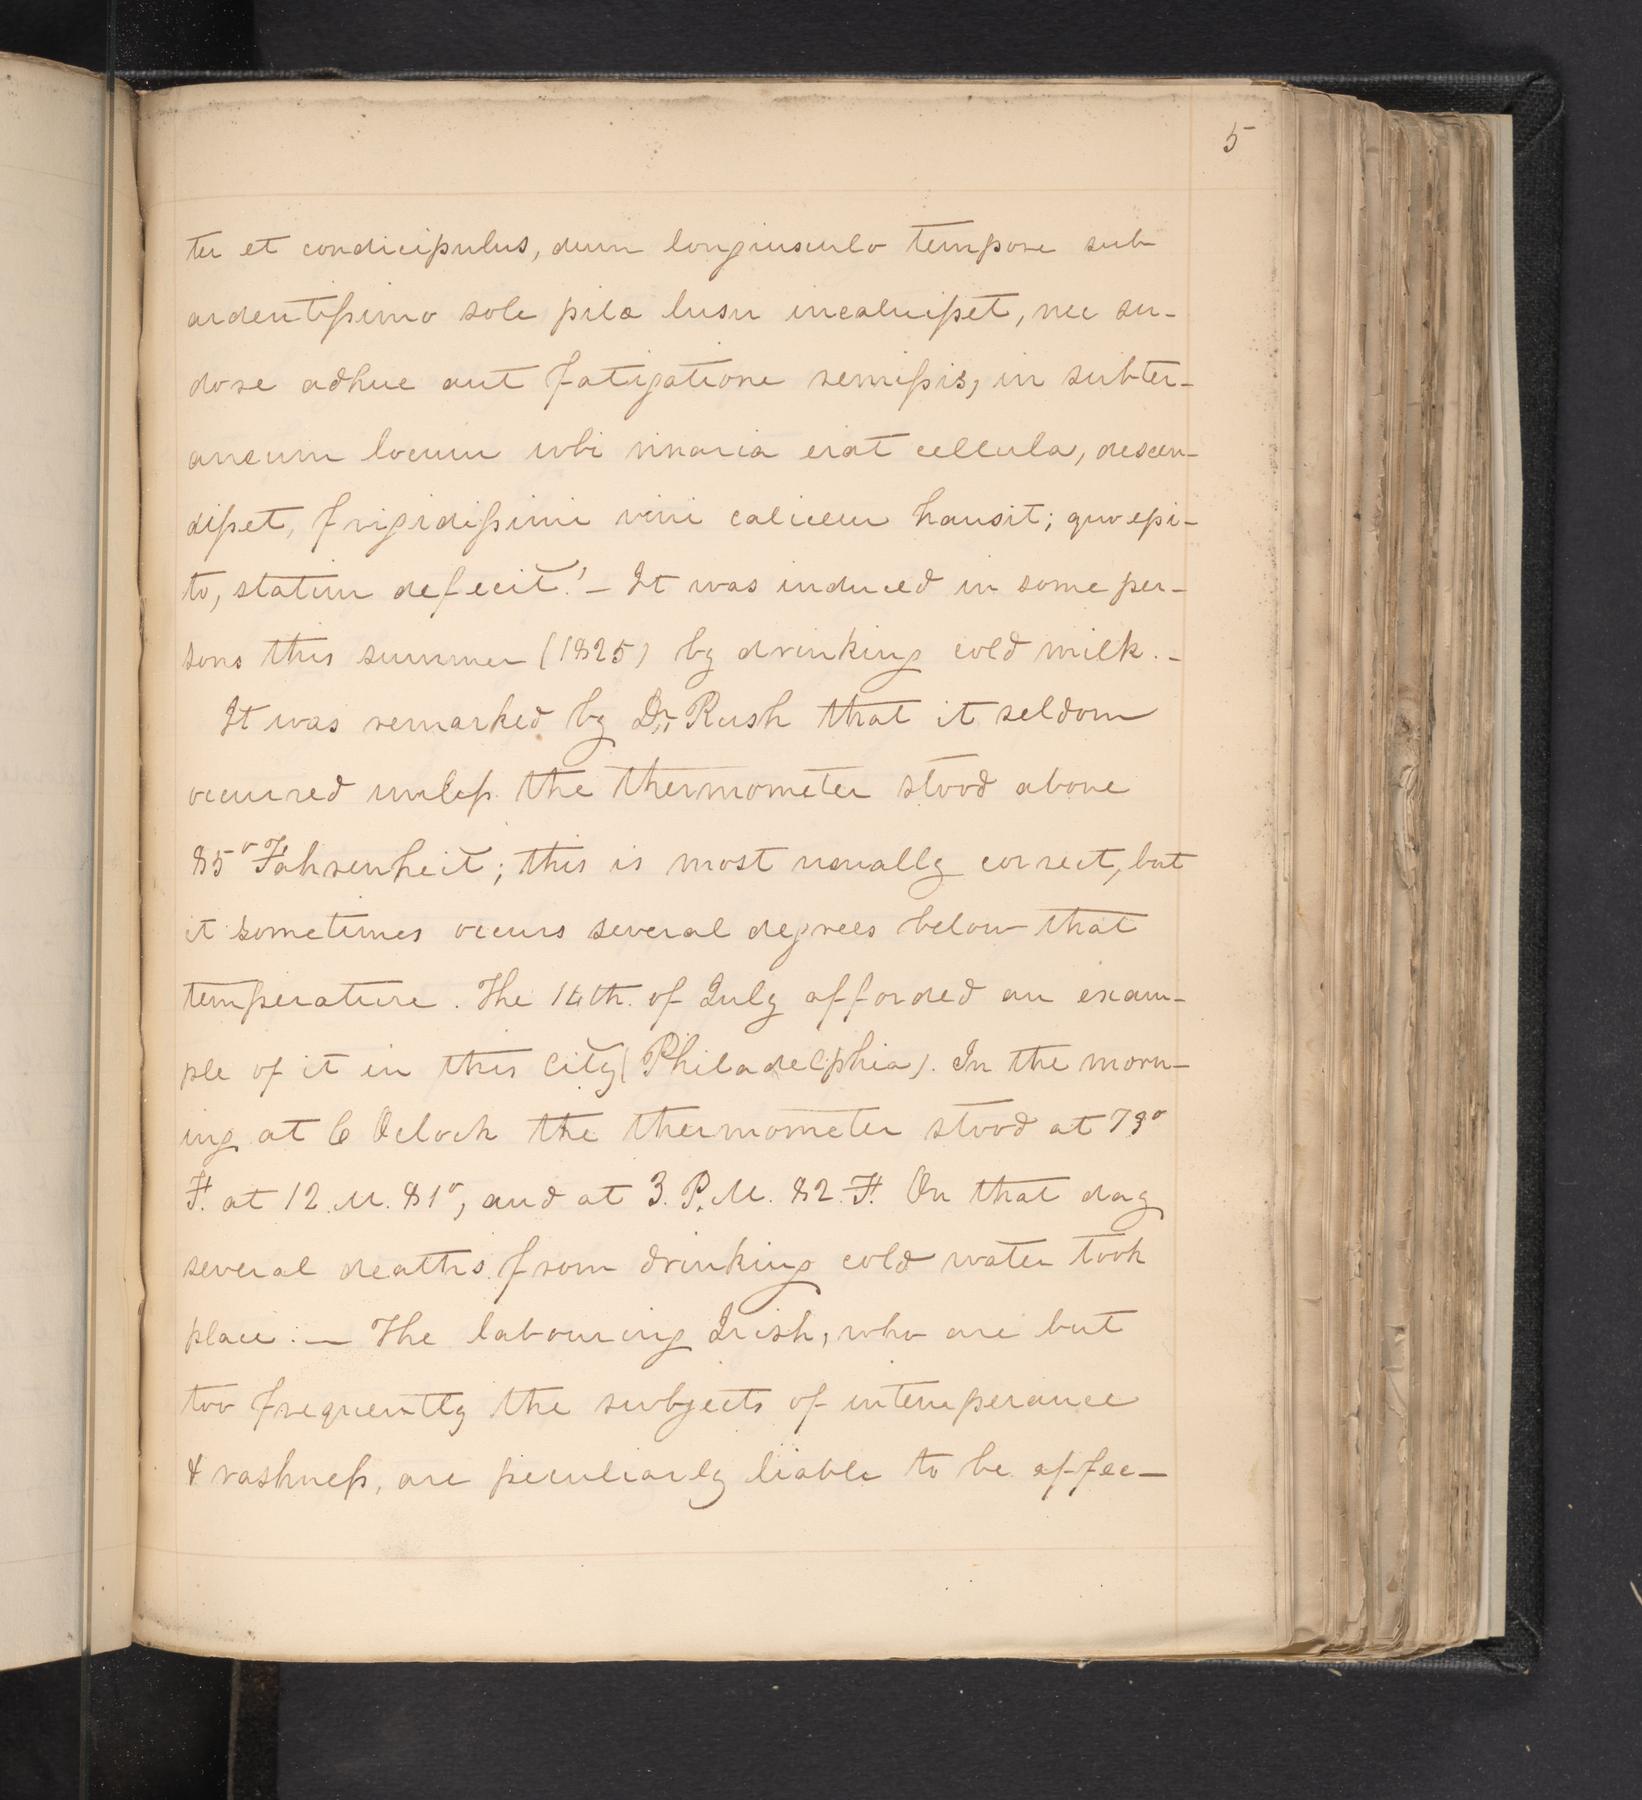 5
ter et condicipulus, dum longiusculo tempore sub
ardentissimo sole pilæ lusu incaluisset, nec su-
dore adhuc aut fatigatione remissis, in subter-
aneum locum ubi vinaria erat cellula, descen-
disset, frigidissimi vini calicem hausit; quo epi-
to, statim defecit.' – It was induced in some per-
sons this summer (1825) by drinking cold milk. –
It was remarked by Dr. Rush that it seldom
occurred unless the thermometer stood above
85° Fahrenheit; this is most usually correct, but
it sometimes occurs several degrees below that
temperature. The 14th. of July afforded an exam-
ple of it in this City (Philadelphia). In the morn-
ing at 6 Oclock the thermometer stood at 73°
F. at 12. M. 81°, and at 3. P.M. 82. F. On that day
several deaths from drinking cold water took
place. — The labouring Irish, who are but
too frequently the subjects of intemperance
& rashness, are peculiarly liable to be affec-